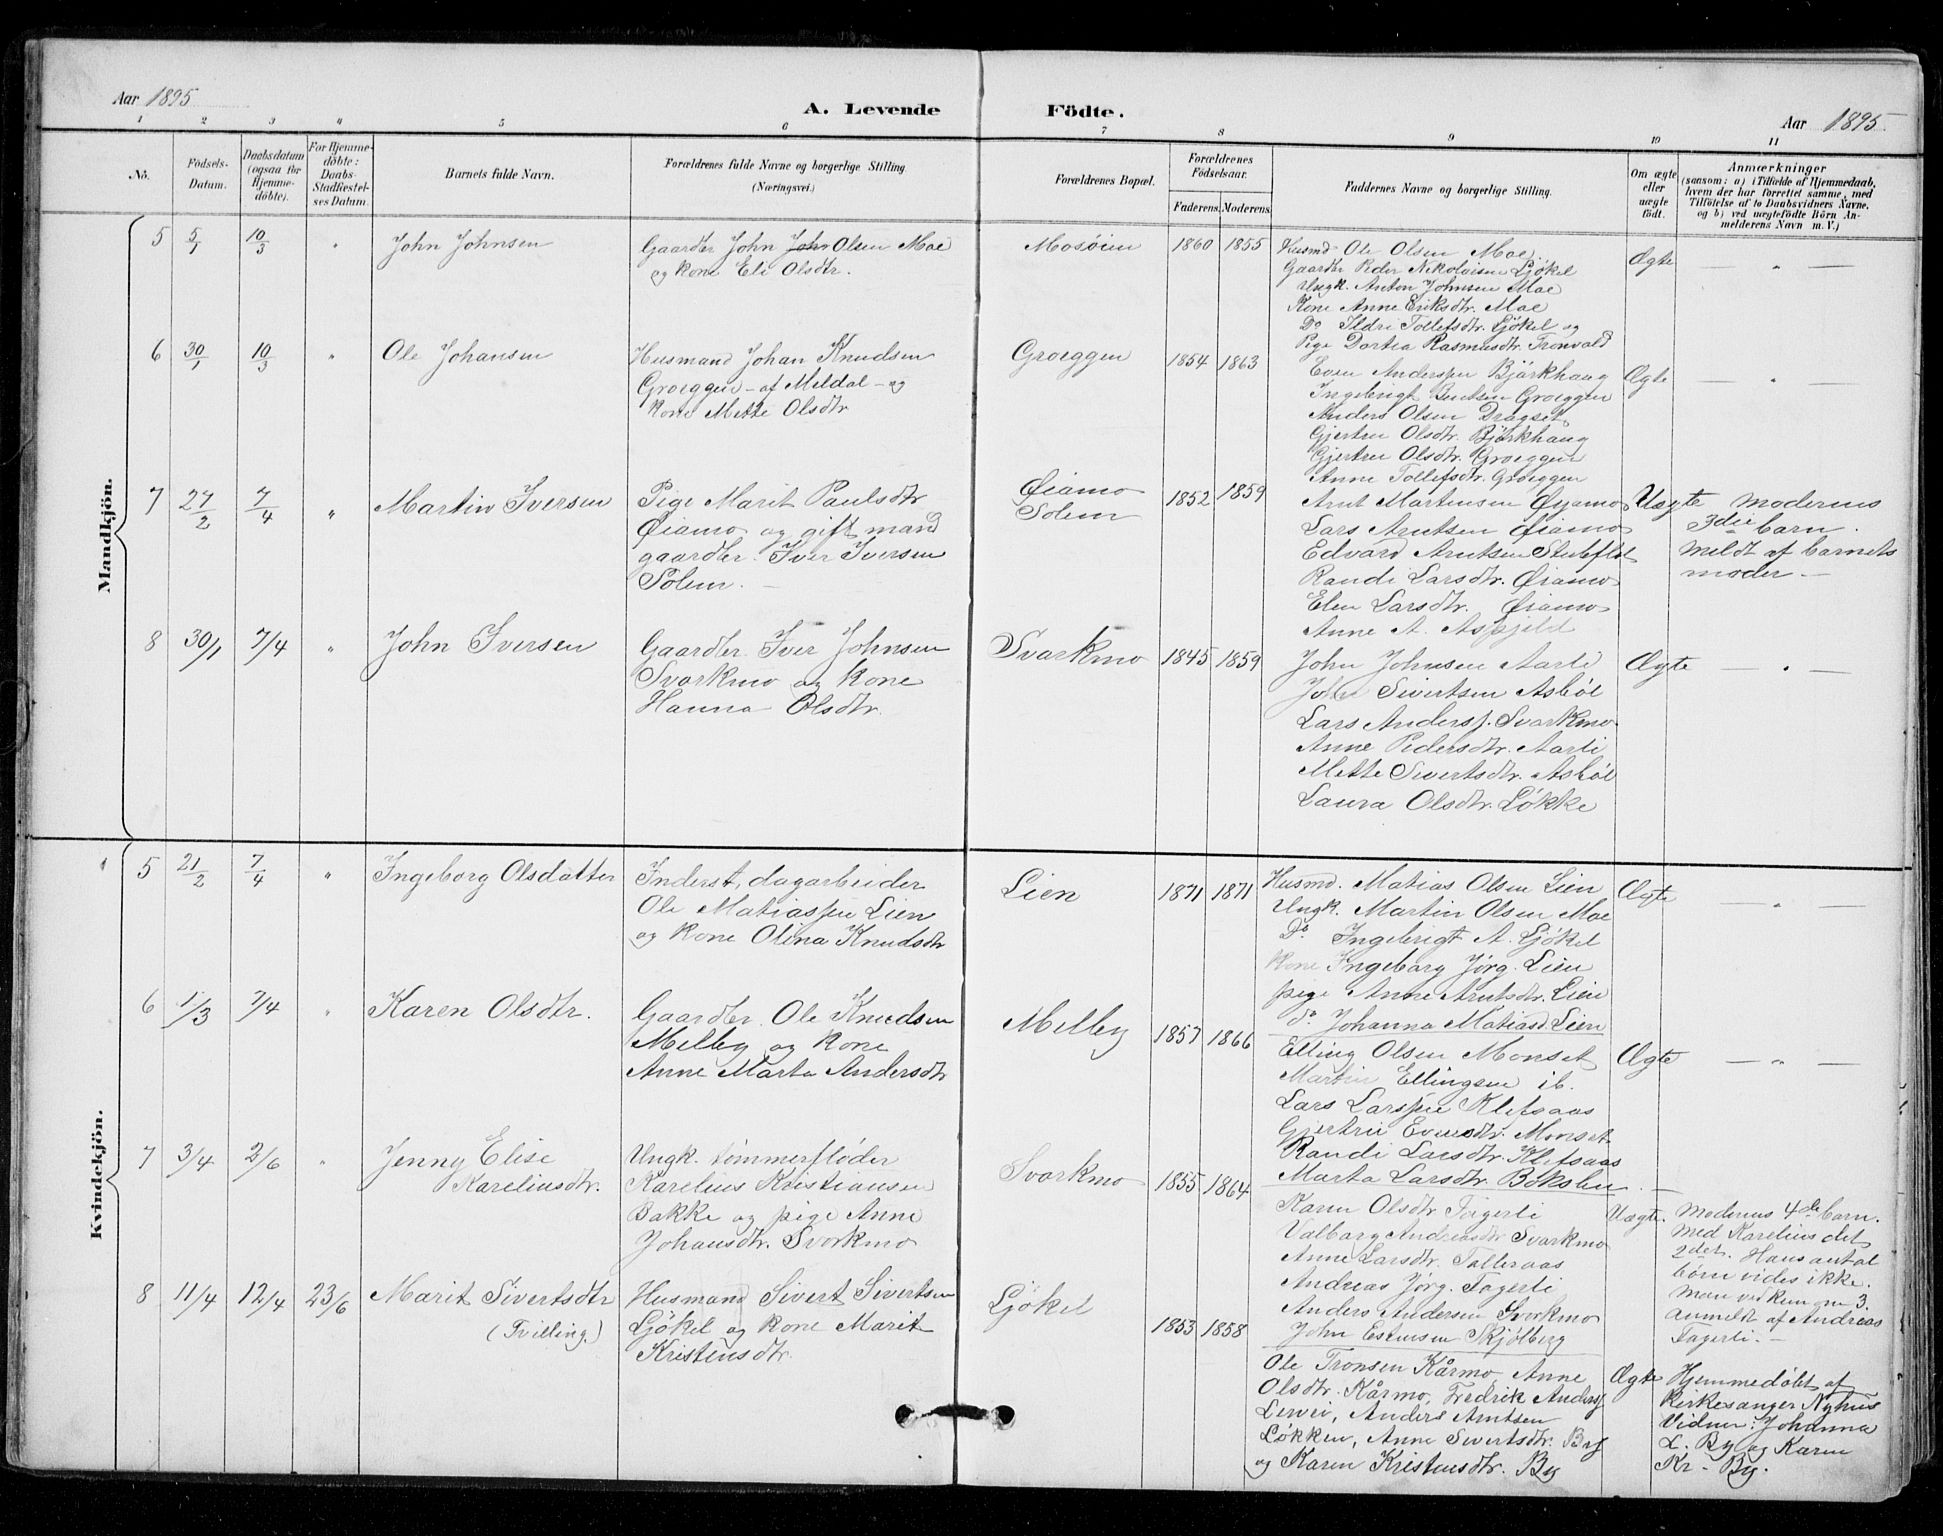 Aar 1895
A. Levende Födte.
Aar 1895.
1 2 3 4 5 6 7 8 9 10 11
No.
Födsels-
Datum.
Daabsdatum
(ogsaa for
Hjemme-
döbte).
For Hjemme-
döbte:
Daabs-
Stadfæstel-
ses Datum.
Barnets fulde Navn.
Forældrenes fulde Navne og borgerlige Stilling
(Næringsvei.)
Forældrenes Bopæl.
Forældrenes
Födselsaar.
Faderens. Moderens.
Faddernes Navne og borgerlige Stilling.
Om ægte
eller
uægte
födt.
Anmærkninger
(saasom: a) i Tilfælde af Hjemmedaab,
hvem der har forrettet samme, med
Tilföielse af to Daabsvidners Navne,
og b) ved uægtefödte Börn An-
melderens Navn m. V.)
Mandkjön.
5 5/1 10/3 "
John Johnsen
Gaardbr John John Olsen Moe
og kone Eli Olsdtr.
Mosøien
1860 1855
Husmd Ole Olsen Moe
Gaardbr Peder Nikolaisen Ljøkel
Ungk. Anton Johnsen Moe
Kone Anne Eriksdtr. Moe
Do Ildri Tollefsdtr. Ljøkel og
Pige Dortea Rasmusdtr. Tronvold
Ægte
— " —
6 30/1 10/3 "
Ole Johansen
Husmand Johan Knudsen
Groeggen - af Meldal - og
kone Mette Olsdtr
Groeggen
1854 1863
Even Anderssen Bjørkhaug
Ingebrigt Bentsen Groeggen
Anders Olsen Dragset
Gjertru Olsdtr. Bjørkhaug
Gjertru Olsdtr. Groeggen
Anne Tollefsdtr. Groeggen
Ægte
— " —
7 27/2 7/4 "
Martin Iversen
Pige Marit Paulsdtr
Øiamo og gift mand
gaardbr. Iver Iversen
Solem. —
Øiamo
Solem
1852 1859
Arnt Martinsen Øyamo
Lars Arntsen Øiamo
Edvard Arntsen
Randi Larsdtr. Øiamo
Elen Larsdtr. Øiamo
Anne A. Aspjeld
Uægte
Moderens
3die barn.
Meldt af barnets
moder. —
8 30/1 7/4 "
John Iversen
Gaardbr. Iver Johnsen
Svarkmo og kone
Hanna Olsdtr.
Svarkmo
1845 1859
John Johnsen Aarli
John Sivertsen Asbøl
Lars Anderss. Svarkmo
Anne Pedersdtr. Aarli
Mette Sivertsdtr. Asbøl
Laura Olsdtr. Løkke
Ægte
— " —
Kvindekjön.
5 21/2 7/4 "
Ingeborg Olsdatter
Inderst, dagarbeider
Ole Matiassen Lien
og kone Olina Knudsdtr
Lien
1871 1871
Husmd. Matias Olsen Lien
Ungk. Martin Olsen Moe
Do. Ingebrigt A. Ljøkel
kone Ingeborg Jørg. Lien
pige Anne Arntsdtr. Lien
do. Johanna Matiasd Lien
Ægte
— " —
6 1/3 7/4 "
Karen Olsdtr.
Gaardbr. Ole Knudsen
Melby og kone
Anne Marta Andersdtr
Melby
1857 1866
Elling Olsen Monset
Martin Ellingsen ib.
Lars Larssen Klefsaas
Gjertru Evensdtr. Monset
Randi Larsdtr. Klefsaas
Marta Larsdtr.
Ægte
— " —
7 3/4 2/6 "
Jenny Elise
Kareliusdtr.
Ungk. tømmerfløder
Karelius Kristiansen
Bakke og pige Anne
Johansdtr. Svorkmo
Svorkmo
1855 1864
Karen Olsdtr Fagerli
Valborg Andreasdtr Svarkmo
Anne Larsdtr. Tolleraas
Andreas Jörg. Fagerli
Anders Andersen Svorkmo
John Estensen Skjølberg
Uægte.
Moderens 4de barn.
med Karelius det
2det. Hans antal
børn vides ikke.
Man ved kun om 3.
Anmeldt af Andreas
Fagerli. —
8 11/4 12/4 23/6
Marit Sivertsdtr
(Tvilling.)
Husmand Sivert Sivertsen
Ljøkel og kone Marit
Kristensdtr.
Ljökel
1853 1858
Ole Tronsen Kårmo, Anne
Olsdtr. Kårmo, Fredrik Anders.
Anders Arntsen
Løkken, Anne Sivertsdtr. By
og Karen Kristensdtr. By
Ægte
Hjemmedøbt af
Kirkesanger Nyhus
Vidner: Johanna
L. By og Karen
Kr. By.